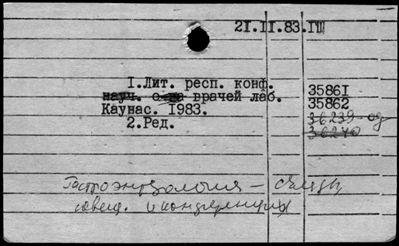 21.II.83.ГШ
1.Лит. респ. конф.
науч. о-ва врачей лаб.
Каунас. 1983.
2.Ред.
35861
35862
36239-од
36240
Гастроэнтерология - съезды
совещ. и конференции